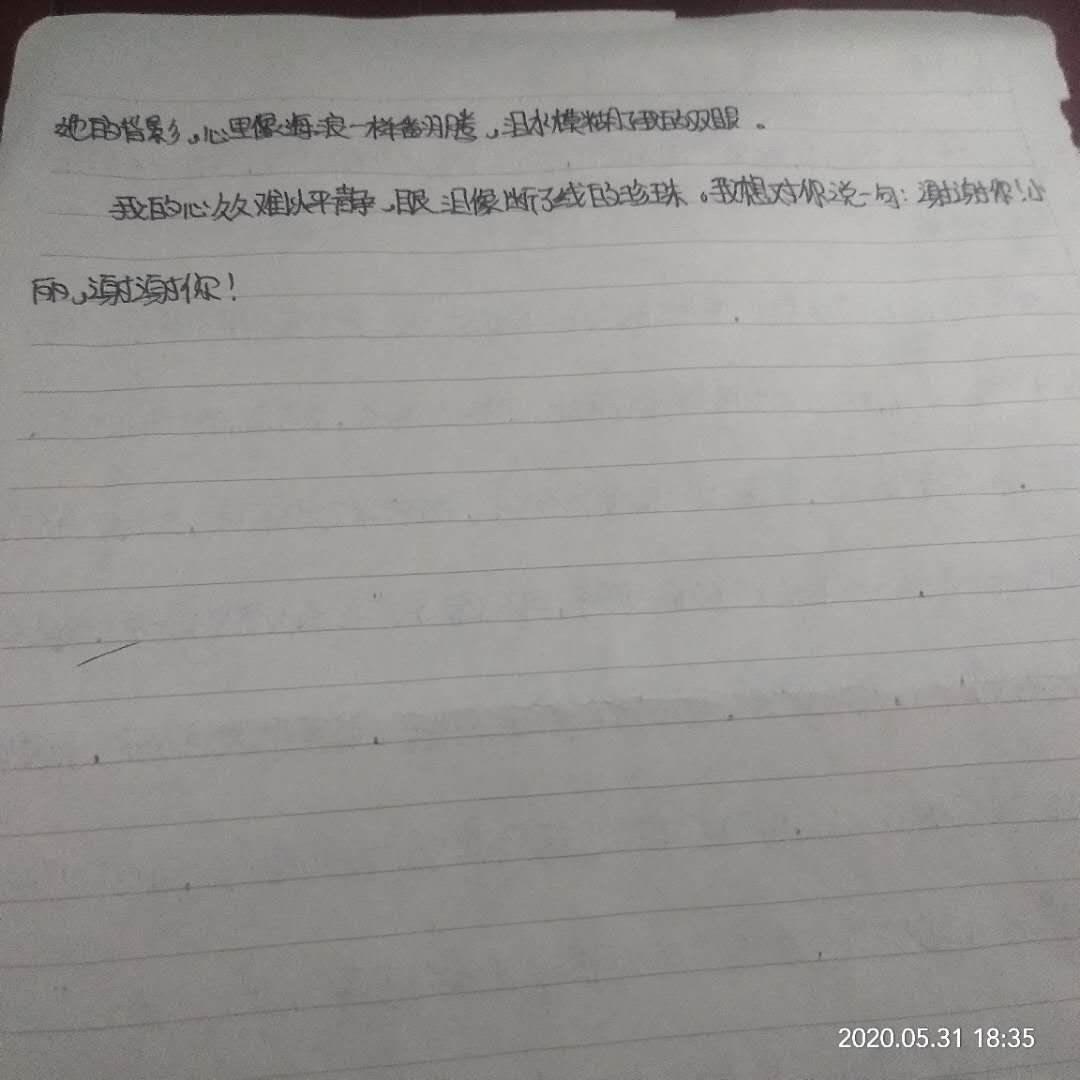 她的背影，心里像海浪一样番腾，泪水模糊了我的双眼。
我的心久久难以平静，眼泪像断了线的珍珠。我想对你说一句：谢谢你！小
丽，谢谢你！
2020.05.31 18:35